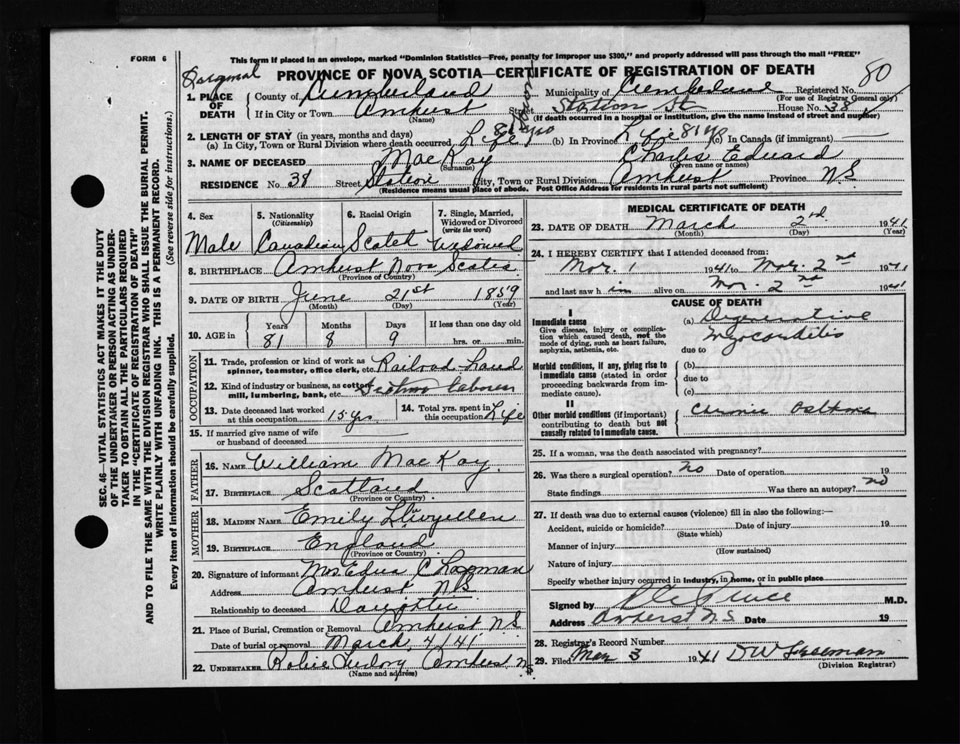 FORM 6
This form if placed in an envelope, marked "Dominion Statistics—Free, penalty for improper use $300," and properly addressed will pass through the mail "FREE"
PROVINCE OF NOVA SCOTIA—CERTIFICATE OF REGISTRATION OF DEATH
80
1. PLACE OF DEATH County of Cumberland Municipality of Cumberland Registered No.
(For use of Registrar General only)
If in City or Town Amherst Street Station St House No. 38
(Name) (If death occurred in a hospital or institution, give the name instead of street and number)
2. LENGTH OF STAY (in years, months and days)
(a) In City, Town or Rural Division where death occurred Life 81 yrs (b) In Province Life 81 yrs (c) In Canada (if immigrant)
3. NAME OF DECEASED MacKay Charles Edward
(Surname) (Given name or names)
RESIDENCE No 38 Street Station City, Town or Rural Division Amherst Province N.S
(Residence means usual place of abode. Post Office Address for residents in rural parts not sufficient)
SEC. 46—VITAL STATISTICS ACT MAKES IT THE DUTY
OF THE UNDERTAKER OR PERSON ACTING AS UNDER-
TAKER TO OBTAIN ALL THE PARTICULARS REQUIRED
IN THE "CERTIFICATE OF REGISTRATION OF DEATH"
AND TO FILE THE SAME WITH THE DIVISION REGISTRAR WHO SHALL ISSUE THE BURIAL PERMIT.
WRITE PLAINLY WITH UNFADING INK. THIS IS A PERMANENT RECORD.
Every item of information should be carefully supplied. (See reverse side for instructions.)
4. Sex 5. Nationality (Citizenship) 6. Racial Origin 7. Single, Married, Widowed or Divorced (write the word)
Male Canadian Scotch Widowed
8. BIRTHPLACE Amherst Nova Scotia
(Province or Country)
9. DATE OF BIRTH June 21st 1859
(Month) (Day) (Year)
10. AGE in Years Months Days If less than one day old
81 8 9 hrs. or min.
OCCUPATION
11. Trade, profession or kind of work as spinner, teamster, office clerk, etc. Railroad hand
12. Kind of industry or business, as cotton mill, lumbering, bank, etc. laborer
13. Date deceased last worked at this occupation 15 yrs 14. Total yrs. spent in this occupation Life
15. If married give name of wife or husband of deceased
FATHER
16. NAME William MacKay
17. BIRTHPLACE Scotland
(Province or Country)
MOTHER
18. MAIDEN NAME Emily
19. BIRTHPLACE England
(Province or Country)
20. Signature of informant Mrs Edna Chapman
Address Amherst N.S
Relationship to deceased Daughter
21. Place of Burial, Cremation or Removal Amherst N.S
Date of burial or removal March 4/41
22. UNDERTAKER Amherst N.S
(Name and address)
MEDICAL CERTIFICATE OF DEATH
23. DATE OF DEATH March 2nd 1941
(Month) (Day) (Year)
24. I HEREBY CERTIFY that I attended deceased from:
Mar. 1 1941 to Mar. 2nd 1941
and last saw him alive on Mar. 2nd 1941
CAUSE OF DEATH
I
Immediate cause
Give disease, injury or complication which caused death, not the mode of dying, such as heart failure, asphyxia, asthenia, etc.
(a) Degenerative Myocarditis
due to
Morbid conditions, if any, giving rise to immediate cause (stated in order proceeding backwards from immediate cause).
(b)
due to
(c)
II
Other morbid conditions (if important) contributing to death but not causally related to immediate cause.
Chronic Asthma
25. If a woman, was the death associated with pregnancy?
26. Was there a surgical operation? no Date of operation 19
State findings Was there an autopsy? no
27. If death was due to external causes (violence) fill in also the following:—
Accident, suicide or homicide? Date of injury 19
(State which)
Manner of injury
(How sustained)
Nature of injury
Specify whether injury occurred in industry, in home, or in public place
Signed by M.D.
Address Amherst N.S. Date 19
28. Registrar's Record Number
29. Filed Mar 3 1941
(Division Registrar)